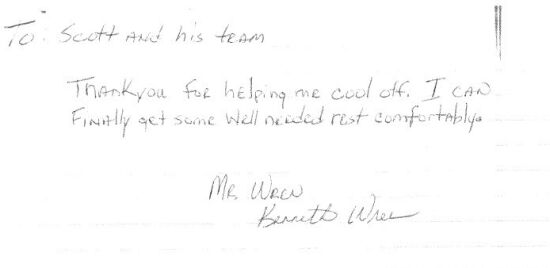 To: Scott and his team
Thankyou for helping me cool off. I can
Finally get some well needed rest comfortably.
Mr Wren
Kenneth Wren